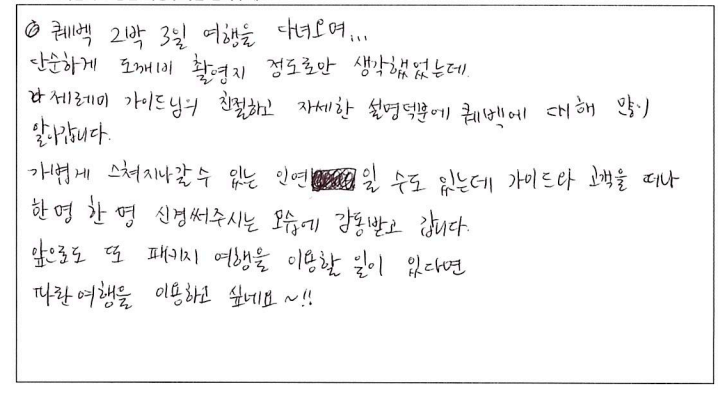 ◎ 퀘벡 2박 3일 여행을 다녀오며...
단순하게 도깨비 촬영지 정도로만 생각했었는데.
제레미 가이드님의 친절하고 자세한 설명덕분에 퀘벡에 대해 많이
알아갑니다.
가볍게 스쳐지나갈 수 있는 인연일 수도 있는데 가이드와 고객을 떠나
한 명 한 명 신경써주시는 모습에 감동받고 갑니다.
앞으로도 또 패키지 여행을 이용할 일이 있다면
파란여행을 이용하고 싶네요~!!